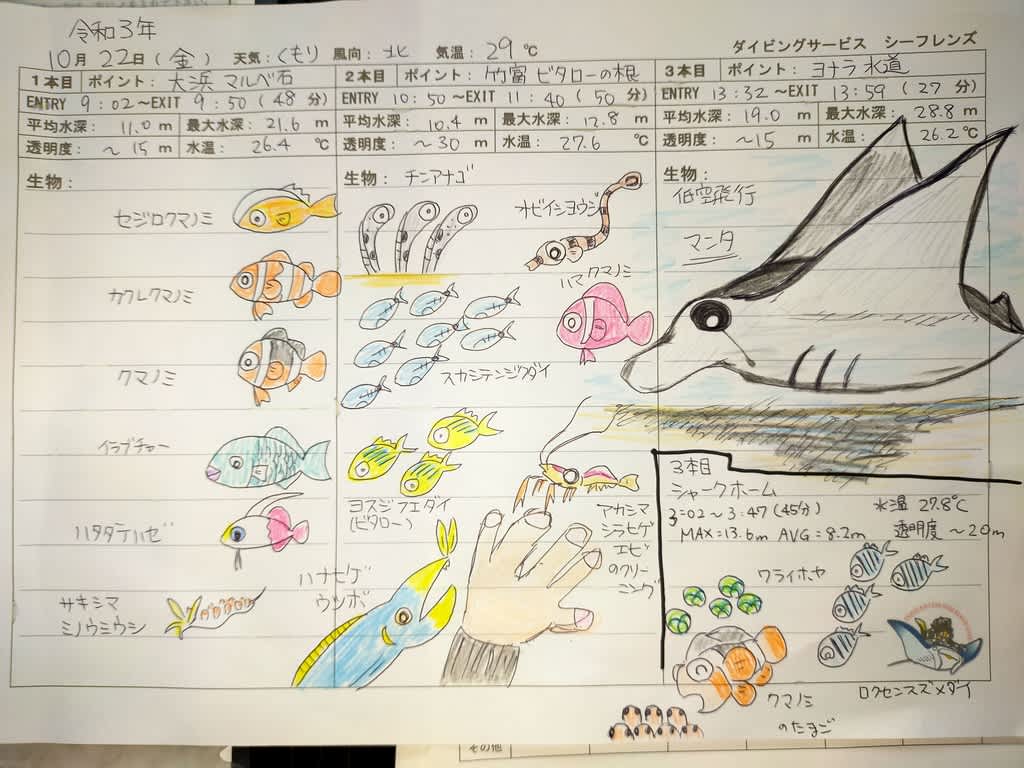 令和3年
10月 22日(金) 天気:くもり 風向:北 気温:29℃
ダイビングサービス シーフレンズ
1本目 ポイント:大浜 マルベ石
ENTRY 9:02~EXIT 9:50(48分)
平均水深:11.0m 最大水深:21.6m
透明度:~15m 水温:26.4℃
生物:
セジロクマノミ
カクレクマノミ
クマノミ
イラブチャー
ハタタテハゼ
サキシマ
ミノウミウシ
2本目 ポイント:竹富 ビタローの根
ENTRY 10:50~EXIT 11:40(50分)
平均水深:10.4m 最大水深:12.8m
透明度:~30m 水温:27.6℃
生物:チンアナゴ
オビイシヨウジ
ハマクマノミ
スカシテンジクダイ
ヨスジフエダイ
(ビタロー)
アカシマ
シラヒゲ
エビ
のクリー
ニング
ハナヒゲ
ウツボ
3本目 ポイント:ヨナラ水道
ENTRY 13:32~EXIT 13:59(27分)
平均水深:19.0m 最大水深:28.8m
透明度:~15m 水温:26.2℃
生物:
低空飛行
マンタ
3本目
シャークホーム
3:02~3:47(45分) 水温 27.8℃
MAX=13.6m AVG=8.2m 透明度~20m
ワライホヤ
ロクセンスズメダイ
クマノミ
のたまご
その他